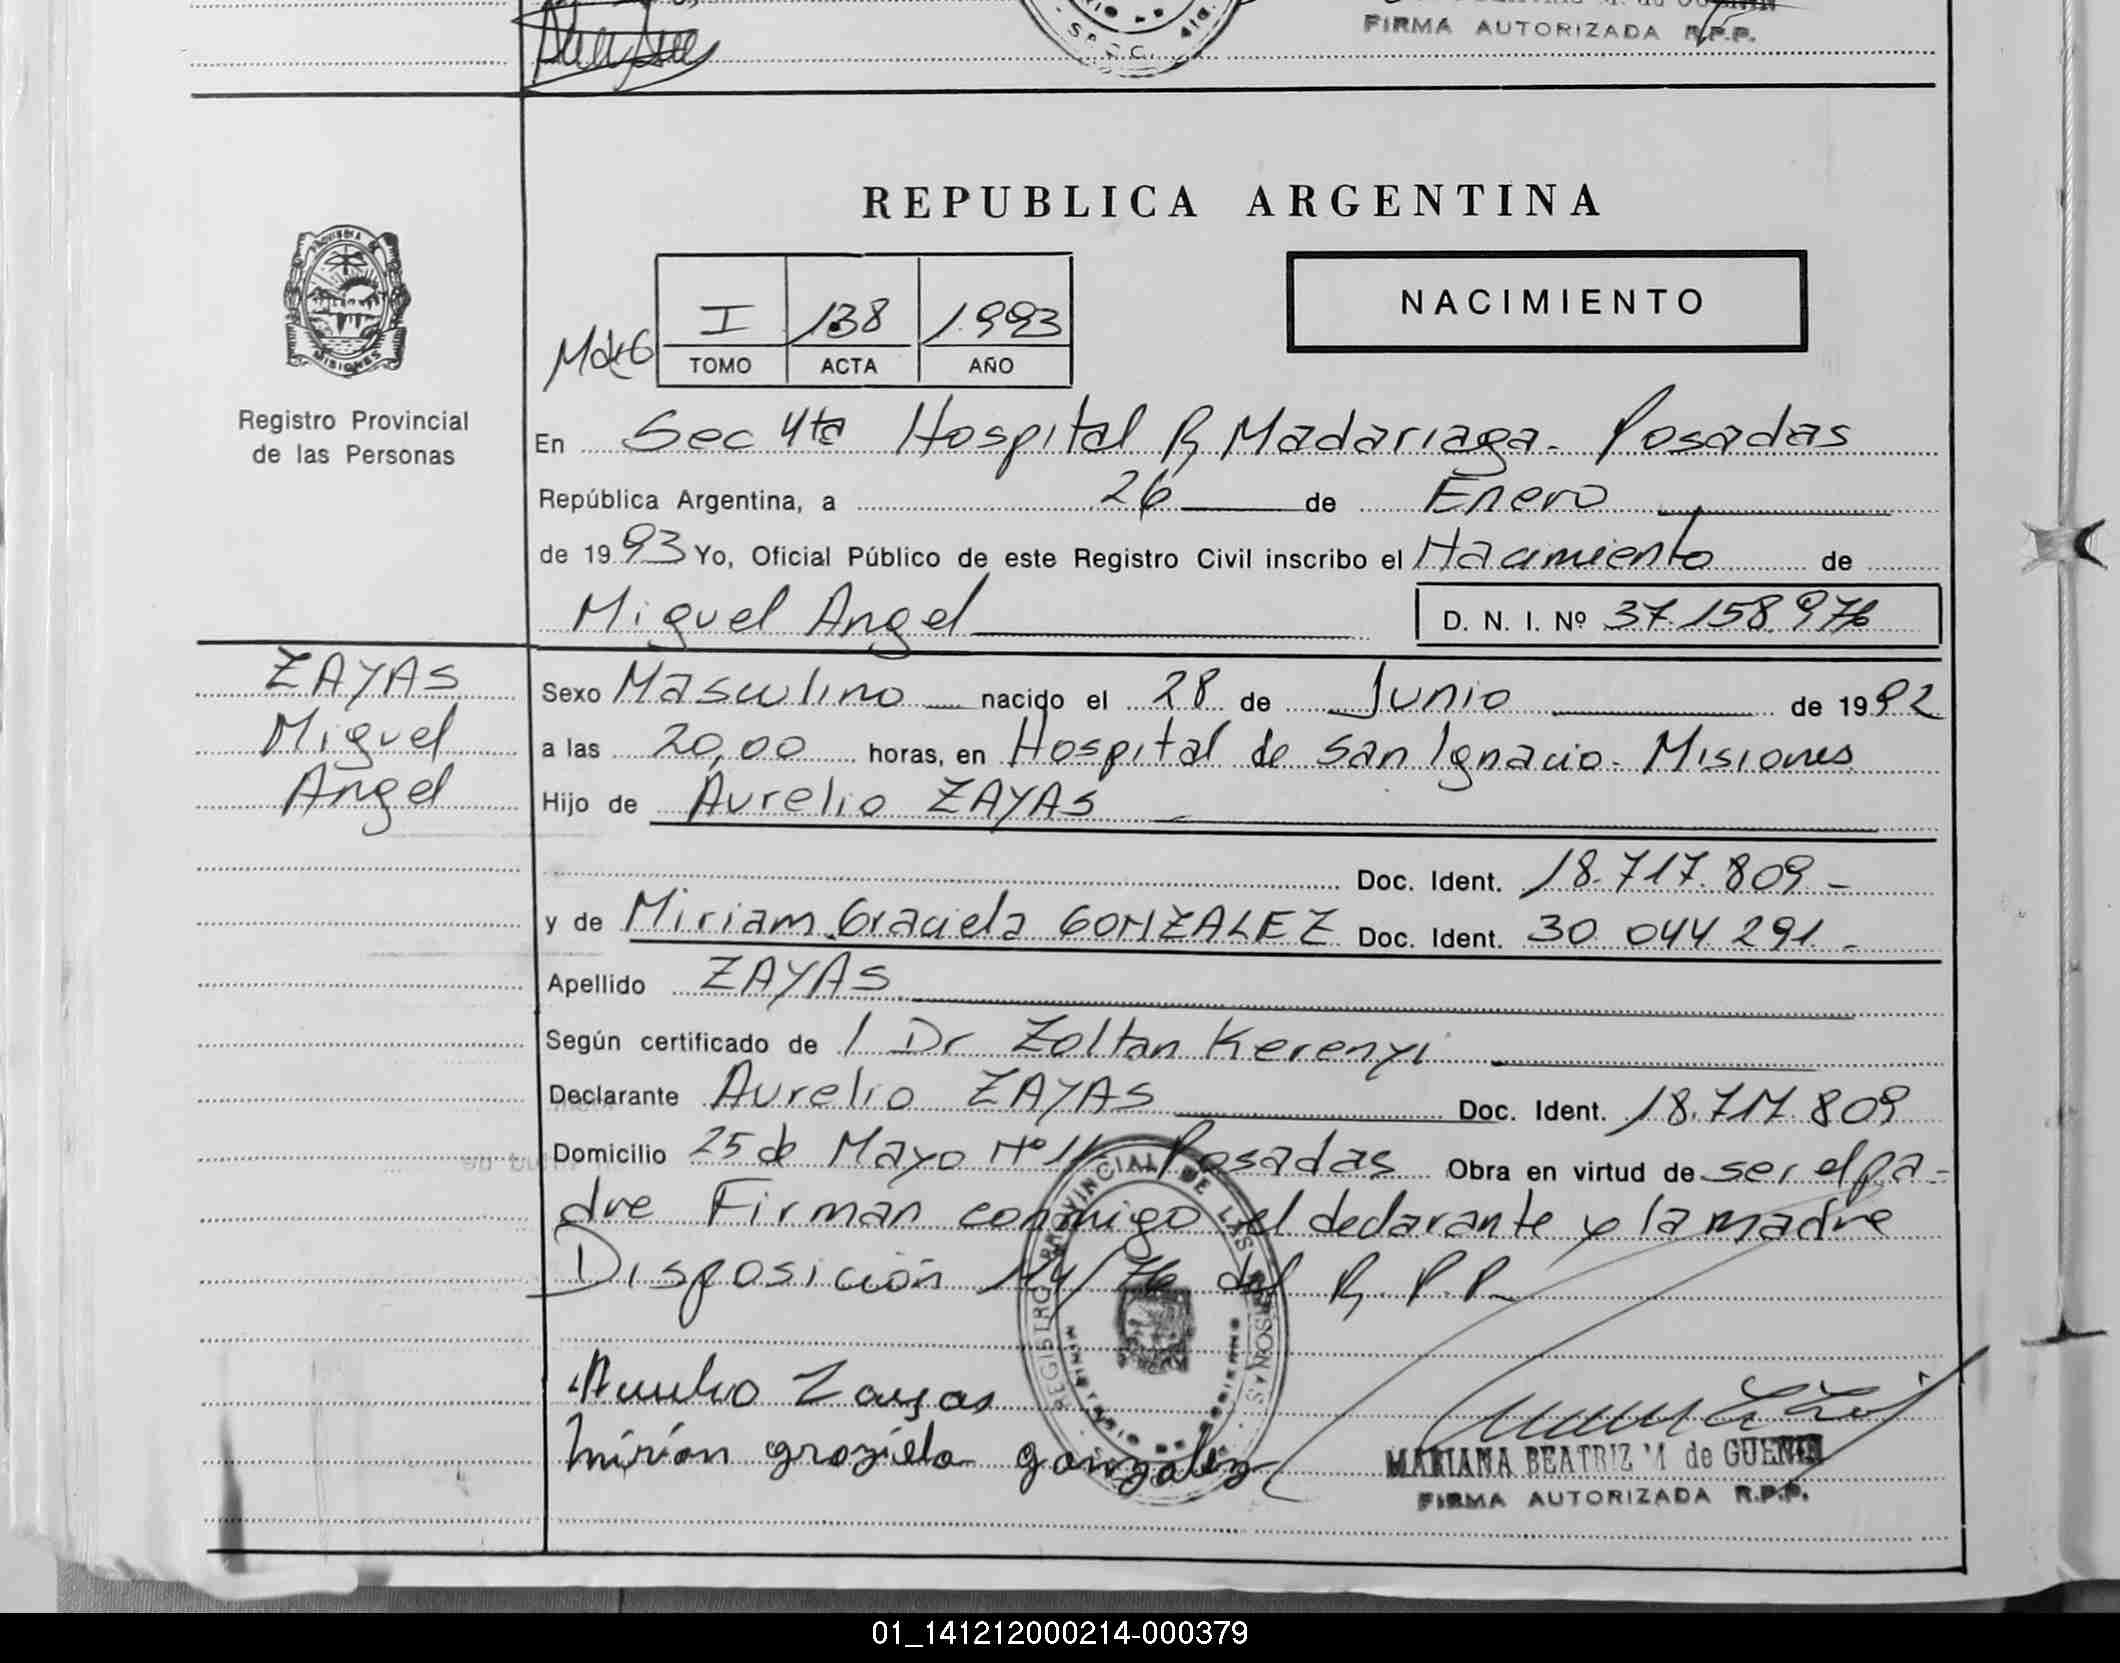 FIRMA AUTORIZADA R.P.P.
REPUBLICA ARGENTINA
PROVINCIA DE
MISIONES
Registro Provincial
de las Personas
I 138 1.993
TOMO ACTA AÑO
NACIMIENTO
En Sec 4ta Hospital R, Madariaga - Posadas
República Argentina, a 26 de Enero
de 1993 Yo, Oficial Público de este Registro Civil inscribo el Nacimiento de
Miguel Angel
D. N. I. Nº 37.158.976
ZAYAS
Miguel
Angel
Sexo Masculino nacido el 28 de Junio de 1992
a las 20,00 horas, en Hospital de San Ignacio - Misiones
Hijo de Aurelio ZAYAS
Doc. Ident. 18.717.809 -
y de Miriam Graciela GONZALEZ Doc. Ident. 30 044 291 -
Apellido ZAYAS
Según certificado de / Dr Zoltan Kerenyi
Declarante Aurelio ZAYAS Doc. Ident. 18.717.809
Domicilio 25 de Mayo Nº 11 Posadas Obra en virtud de ser el pa-
dre Firman conmigo el declarante y la madre
Disposición 114/76 del R. P. P.
REGISTRO PROVINCIAL DE LAS PERSONAS
MINISTERIO DE GOBIERNO
Aurelio Zayas
Mirian graziela gonzalez
MARIANA BEATRIZ M de GUENIN
FIRMA AUTORIZADA R.P.P.
01_141212000214-000379